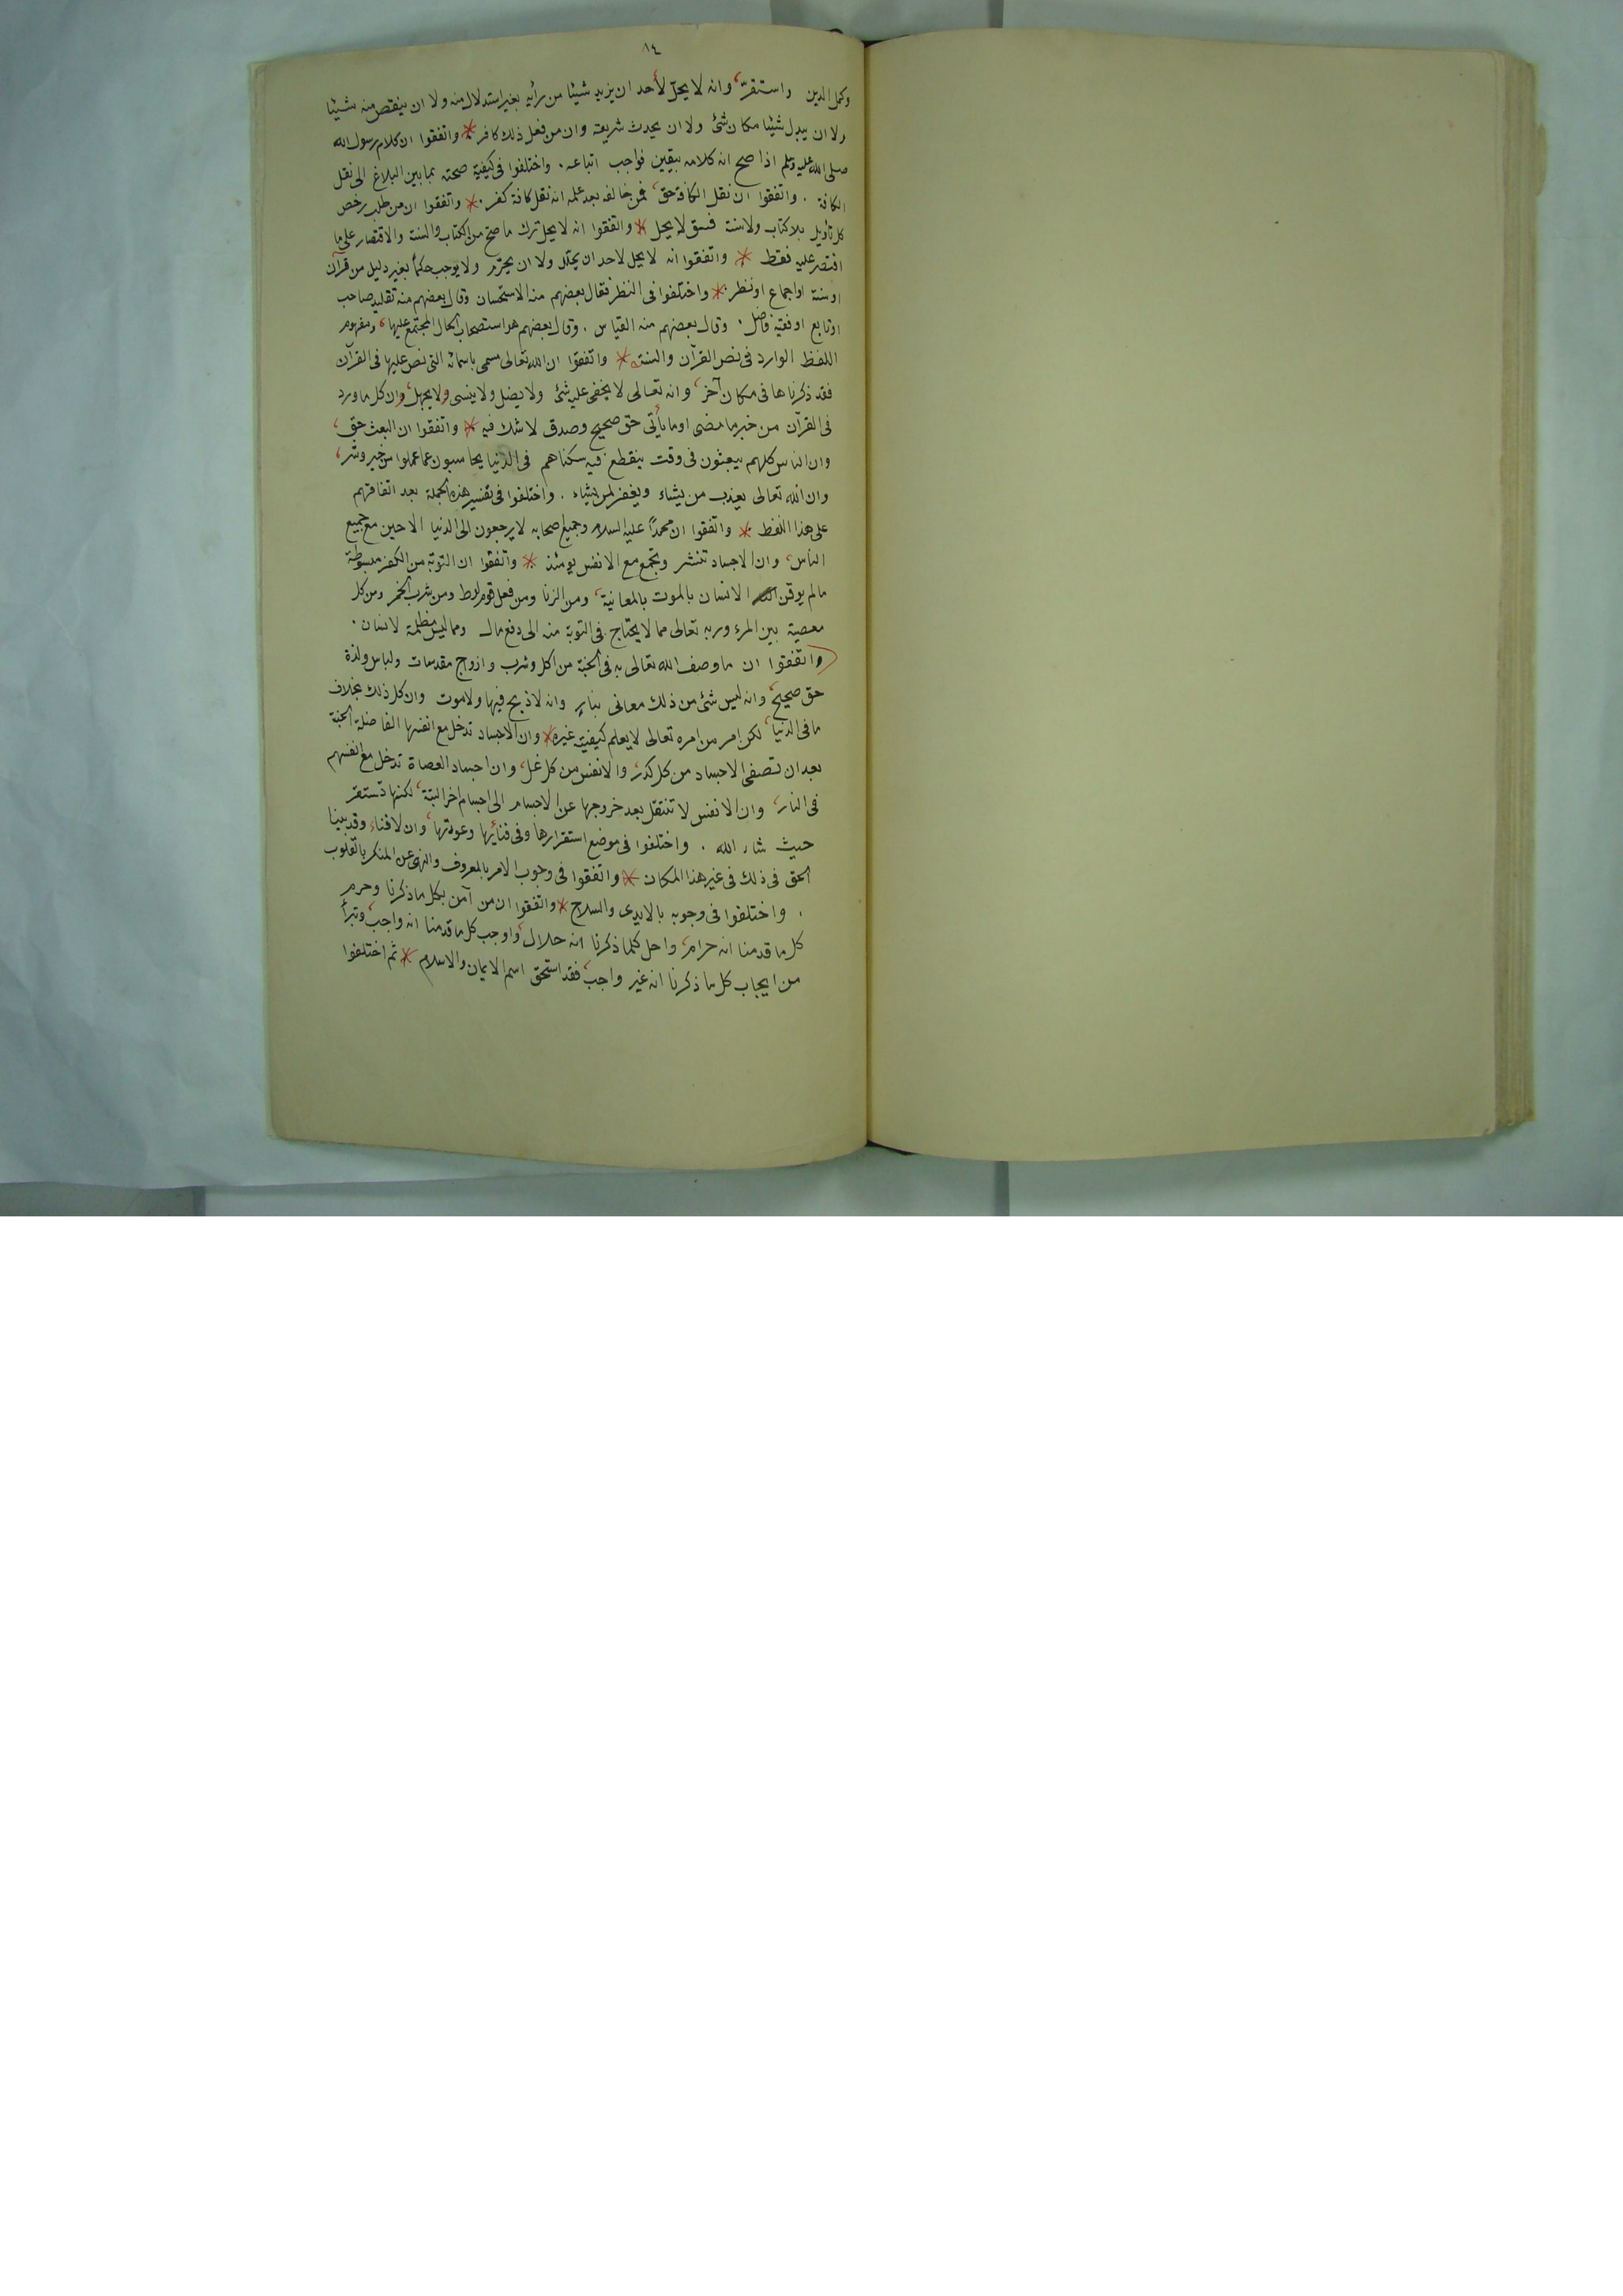 ١٤
وكمل الدين واستقرّ، وانه لا يحلّ لأحد ان يزيد شيئا من رأيه بغير استدلال منه ولا ان ينقص منه شيئا
ولا ان يبدل شيئا مكان شئ ولا ان يحدث شريعة وان من فعل ذلك كافر * واتفقوا ان كلام رسول الله
صلى الله عليه وسلم اذا صح انه كلامه بيقين فواجب اتباعه . واختلفوا فى كيفية صحته بما بين البلاغ الى نقل
الكافة . واتفقوا ان نقل الكافة حق، فمن خالفه بعد علمه انه نقل كافة كفر . * واتفقوا ان من طلب رخص
كل تأويل بلا كتاب ولا سنة فسق لا يحل * واتفقوا انه لا يحل ترك ما صح من الكتاب والسنة والاقتصار على ما
اقتصر عليه فقط * واتفقوا انه لا يحل لاحد ان يحلل ولا ان يحرّم ولا يوجب حكماً بغير دليل من قرآن
او سنة او اجماع او نظر . * واختلفوا فى النظر فقال بعضهم منه الاستحسان وقال بعضهم منه تقليد صاحب
او تابع او فقيه فاضل . وقال بعضهم منه القياس . وقال بعضهم هو استصحاب الحال المجتمع عليها، ومفهوم
اللفظ الوارد فى نص القرآن والسنة * واتفقوا ان الله تعالى مسمى باسمائه التى نص عليها فى القرآن
فقد ذكرناها فى مكان آخر، وانه تعالى لا يخفى عليه شئ ولا يضل ولا ينسى ولا يجهل، وان كل ما ورد
فى القرآن من خبر ما مضى او ما يأتى حق صحيح وصدق لا شك فيه * واتفقوا ان البعث حق،
وان الناس كلهم يبعثون فى وقت ينقطع فيه سكناهم فى الدنيا يحاسبون عما عملوا من خير وشر،
وان الله تعالى يعذب من يشاء ويغفر لمن يشاء . واختلفوا فى تفسير هذه الجملة بعد اتفاقهم
على هذا اللفظ * واتفقوا ان محمداً عليه السلام وجميع اصحابه لا يرجعون الى الدنيا الا حين مع جميع
الناس، وان الاجساد تنشر وتجمع مع الانفس يومئذ * واتفقوا ان التوبة من الكفر مبسوطة
مالم يوقن الانسان بالموت بالمعانية، ومن الزنا ومن فعل قوم لوط ومن شرب الخمر ومن كل
معصية بين المرء وربه تعالى مما لا يحتاج فى التوبة منه الى دفع مال ومما ليس مظلمة لانسان .
(واتفقوا ان ما وصف الله تعالى به فى الجنة من اكل وشرب وازوج مقدسات ولباس ولذة
حق صحيح، وانه ليس شئ من ذلك معانى بنار وانه لا ذبح فيها ولا موت وان كل ذلك بخلاف
ما فى الدنيا، لكن امر من امره تعالى لا يعلم كيفيته غيره * وان الاجساد تدخل مع انفسها الفاضلة الجنة
بعد ان تصفى الاجساد من كل كدر، والانفس من كل غل، وان اجساد العصاة تدخل مع انفسهم
فى النار، وان الانفس لا تنتقل بعد خروجها عن الاجسام الى اجسام اخر البتة، لكنها تستقر
حيث شاء الله . واختلفوا فى موضع استقرارها وفى فنائها وعودتها، وان لا فناء وقد بينا
الحق فى ذلك فى غير هذا المكان * واتفقوا فى وجوب الامر بالمعروف والنهى عن المنكر بالقلوب
. واختلفوا فى وجوبه بالايدى والسلاح * واتفقوا ان من آمن بكل ما ذكرنا وحرم
كل ما قدمنا انه حرام، واحل كلما ذكرنا انه حلال، واوجب كل ما قدمنا انه واجب، وتبرأ
من ايجاب كل ما ذكرنا انه غير واجب، فقد استحق اسم الايمان والاسلام * ثم اختلفوا